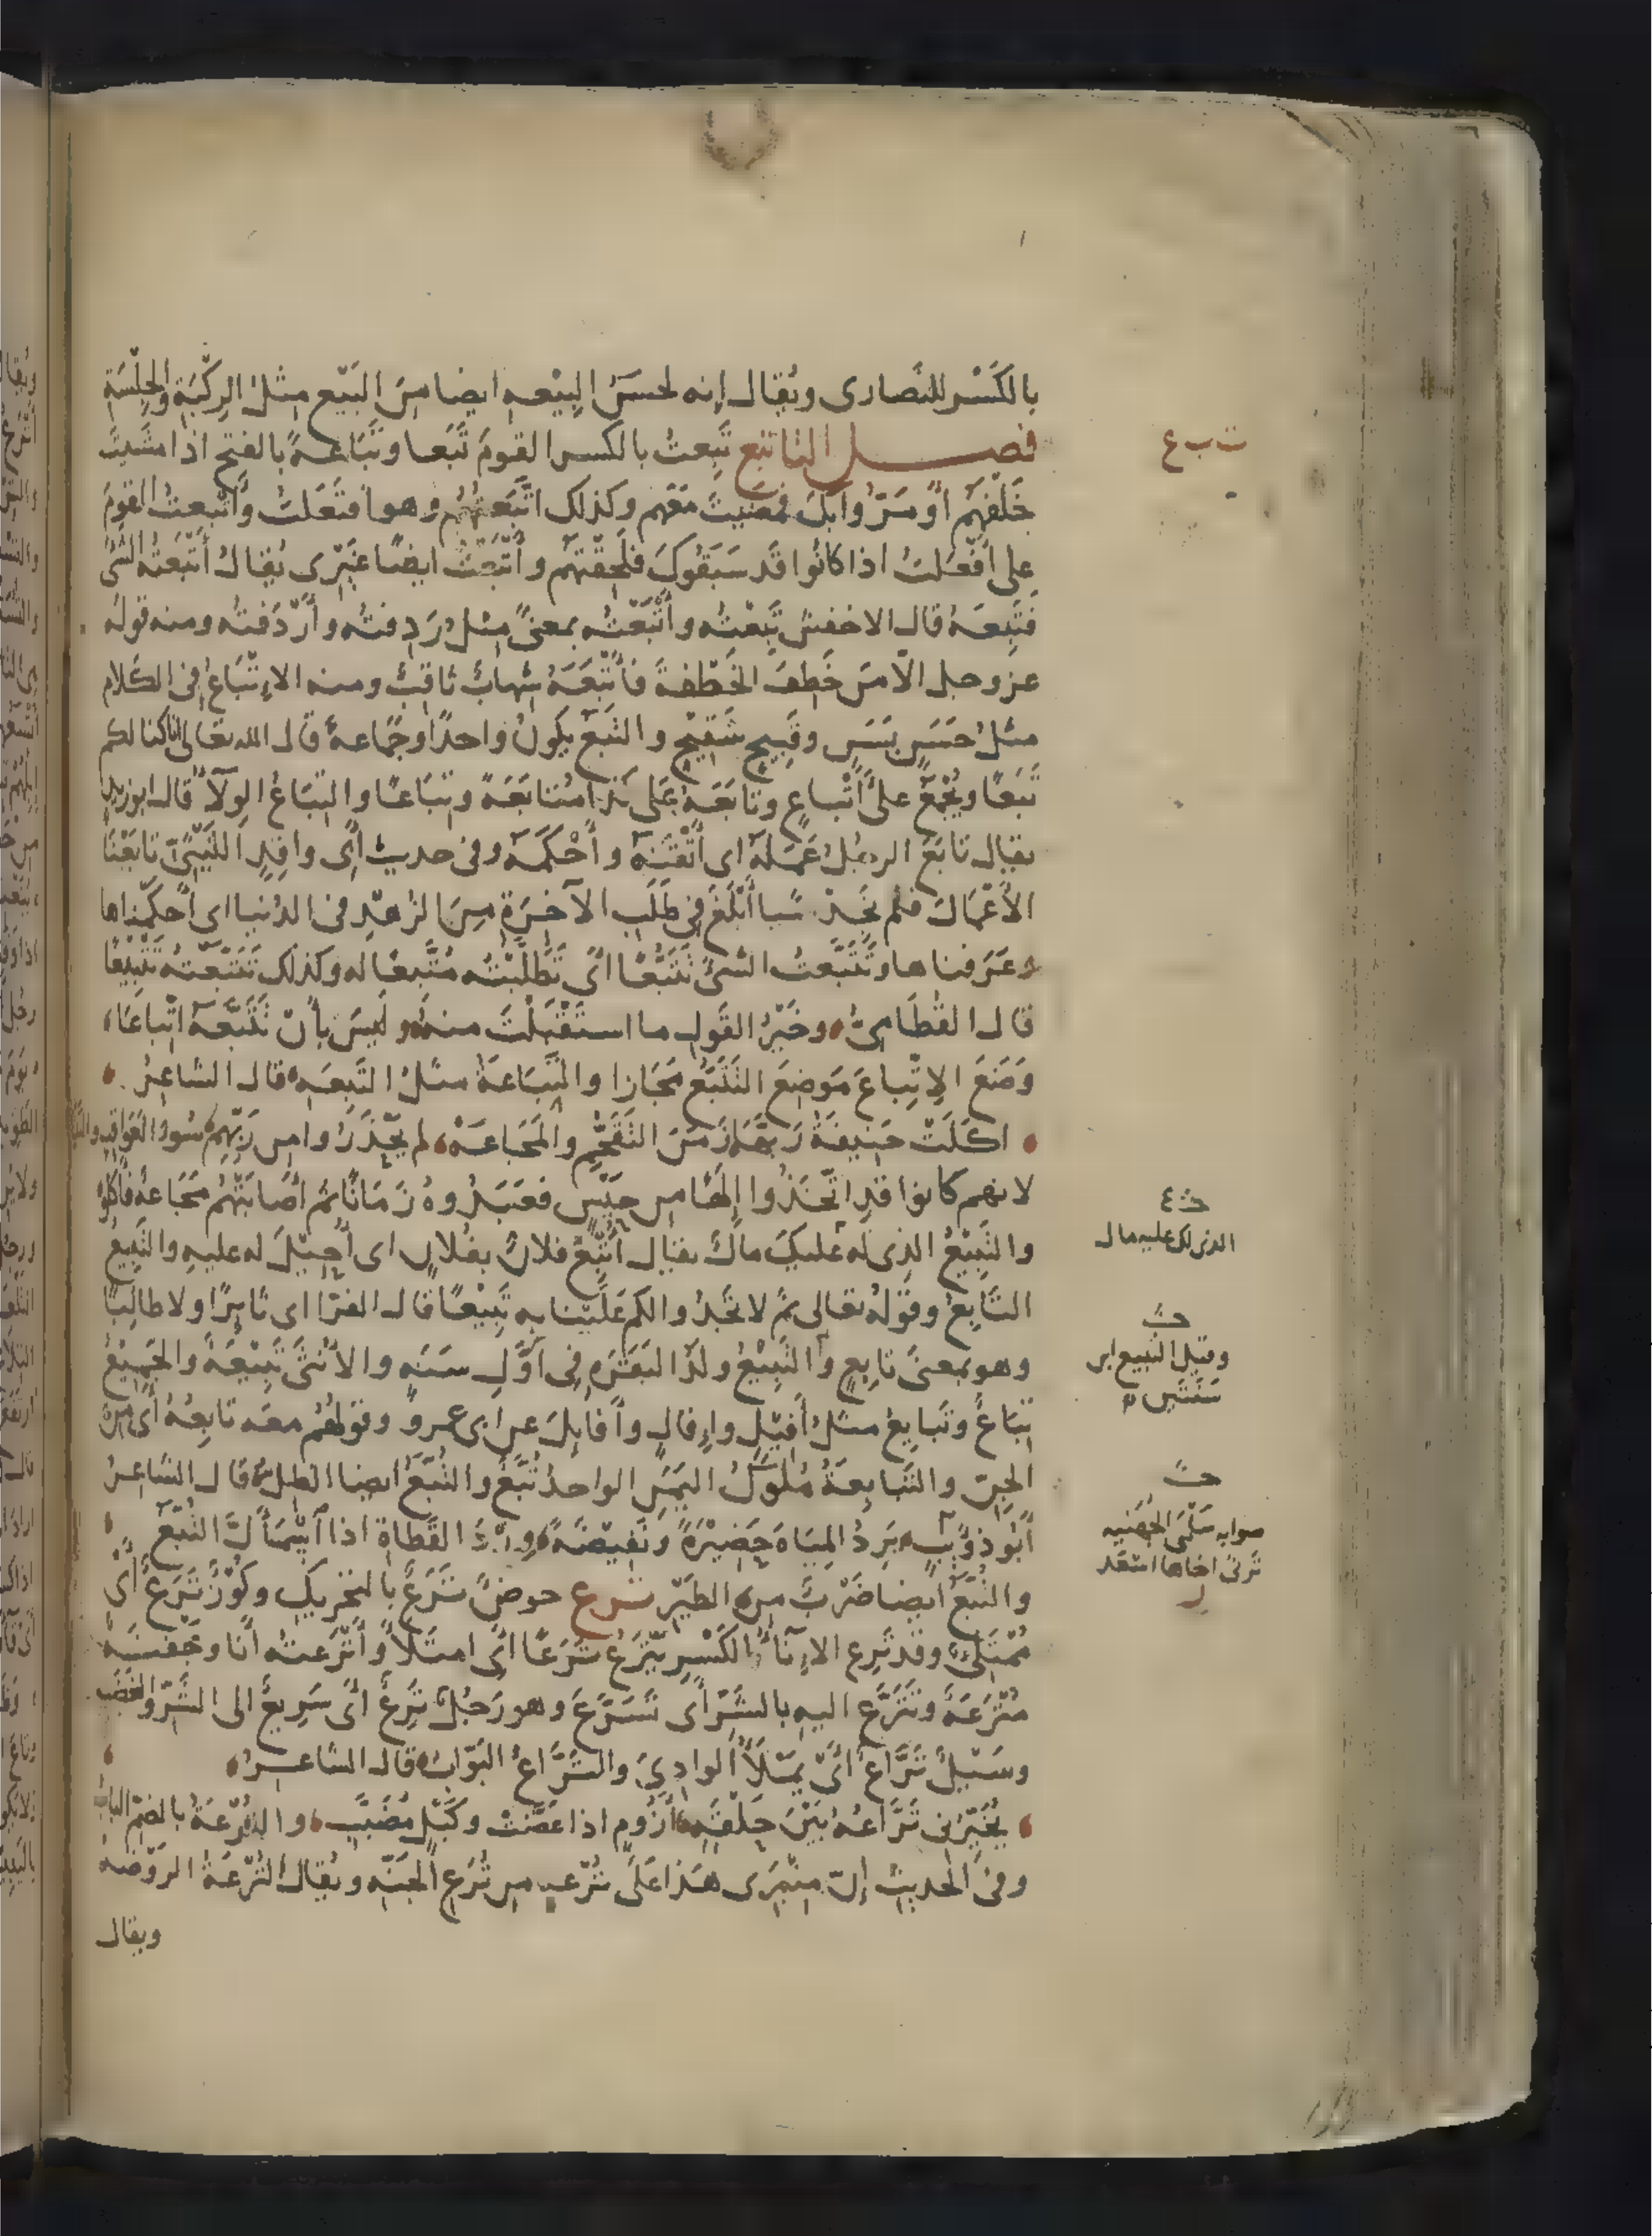 بالكَسْر للنَّصارى ويُقال إنه لحَسَنُ البِيْعه ايضا مِنَ البَيْع مِثلُ الرِكْبَة والجِلْسَة
فصل التا تبع تَبِعتُ بالكسر القومَ تَبَعا وتَبَاعةً بالفتح اذا مشَيتَ
خَلْفَهم أو مَرّوا بكَ فمضَيتَ مَعَهم وكذلك اتَّبَعتُهُم وهو افتَعَلتُ وأتْبعتُ القومَ
على أفْعَلتُ اذا كانُوا قد سَبَقُوكَ فلَحِقْتَهم وأتْبَعْتُ ايضًا غَيْرى يُقالُ أتْبَعتُه الشئَ
فتَبِعَهُ قال الاخفش تَبِعْتُه وأتْبَعْتُه بمعنًى مثلُ رَدِفتُه وأرْدَفتُه ومنه قولُه
عز وجل الّا مَن خَطِفَ الخَطْفةَ فأتْبَعَهُ شِهابٌ ثاقبٌ ومنه الإتْبَاعُ فى الكلام
مثلُ حَسَنٍ بَسَنٍ وقَبِيحٍ شَقِيحٍ والتَبَعُ يكونُ واحدًا وجَماعةً قال الله تعالى اناكنا لكم
تَبَعًا ويُجْمَعُ على أتْباعٍ وتابَعَهُ عَلَى كذا مُتابَعَةً وتِبَاعًا والتِبَاعُ الوِلآءُ قال ابوزيد
يقال تابَعَ الرجُلُ عَمَلهُ اى أتْقَنَهُ وأحْكَمَه وفى حديث أبى واقِدٍ اللَيْثِىّ تابَعْنَا
الأعْمَالَ فلم نَجِدْ شيا أبْلَغَ فى طَلَبِ الآخِرَةِ مِنَ الزُهْدِ فى الدُنيا اى أحكَمْناها
وعَرَفناها وتَتَبَّعتُ الشئَ تَتَبُّعًا أى تَطَلّبْتُه مُتَّبعًا له وكذلك تَتَبَّعْتُه تَتْبِيْعًا
قال القُطَامِىُّ وخَيْرُ القَولِ ما استَقْبَلْتَ منهُ وليسَ بأنْ تَتَبَّعَهُ اتّباعَا
وَضَعَ الاِتّباعَ مَوضِعَ التَتَبُّعِ مَجَازا والتِبَاعَةُ مثلُ التَبِعَه قال الشاعرُ
اكَلَتْ حنِيفَةُ رَبَّها زَمَنَ التَقَحُّمِ والمَجَاعَهْ لم يَحْذَرُوا من رَبّهِمْ سُوءَ العَواقِبِ والتِبَاعَه
لانهم كانوا قدِ اتّخَذُوا إلهًا من حَيْسٍ فعَبَدُوهُ زَمَانًا ثم أصَابَتْهُم مَجَاعةٌ فأكلوه
والتَبِيْعُ الذى له عليكَ مالٌ يقال أُتْبِعَ فلانٌ بفُلانٍ اى أُحِيْلَ له عليهِ والتَبِيعُ
التَّابِعُ وقَولُه تعالى ثمّ لا تَجدُوا لكم عَلَيْنا به تَبِيْعًا قال الفرّا اى ثايرًا ولا طالِبًا
وهو بمعنَى تابِعٍ والتَبِيْعُ ولَدُ البَقَرَهِ فِى أوَّلِ سَنَه والأُنْثَى تَبِيْعَةٌ والجَمِيْعُ
تِبَاعٌ وتَبايِعُ مثلُ أفِيْلٍ وإفالٍ وأفايِلَ عن ابى عمرو وقولهُم معَه تابِعَةٌ أى من
الجِنّ والتَّبابِعةُ مُلُوكُ اليَمَنِ الواحدُ تُبَّعٌ والتُبَّعُ ايضا الظِلُّ قال الشاعرُ
أبُو ذؤيب يَرِدُ المِيَاهَ حَضِيْرَةً ونَفِيضَةً وِرْدَ القَطاةِ اذا اسْمَألَّ التُبَّعُ
والتُبَّعُ ايضا ضَرْبٌ مِنَ الطَيْرِ ترع حوضٌ تَرَعٌ بالتحريك وكُوْزٌ تَرَعٌ أى
مُمْتَلئٌ وقد تَرِع الإنآءُ بالكَسْرِ يَتْرَعُ تَرَعًا أى امتَلأ وأتْرَعتُه أنا وجَفنَةٌ
مُتْرَعَةٌ وتَتَرَّع اليه بالشَرّ أى تَسَرَّعَ وهو رَجُلٌ تَرِعٌ أى سَرِيعٌ الى الشَرّ والغضَب
وسَيْلٌ تَرَّاعٌ أىْ يَمْلأُ الوادِىَ والتَرَّاعُ البَوّابُ قال الشاعرُ
يُخَيّرُنى تَرَّاعُهُ بَيْنَ حَلْقَهٍ أزُومٍ اذا عَضَّتْ وكَبْلٍ مُضَبَّبِ والتُرْعَةُ بالضمّ البابُ
وفى الحديث إنّ مِنْبَرى هَذا عَلَى تُرْعهٍ من تُرَعِ الجَنّه ويُقال التُرْعَةُ الرَوْضه
ويقال
ت ب ع
الذى لك عليه مال
وقيل التبيع ابن
سَنَتَين
صوابه سَلْمَى الجُهَنيه
تَرثى اخاها اسْعَد